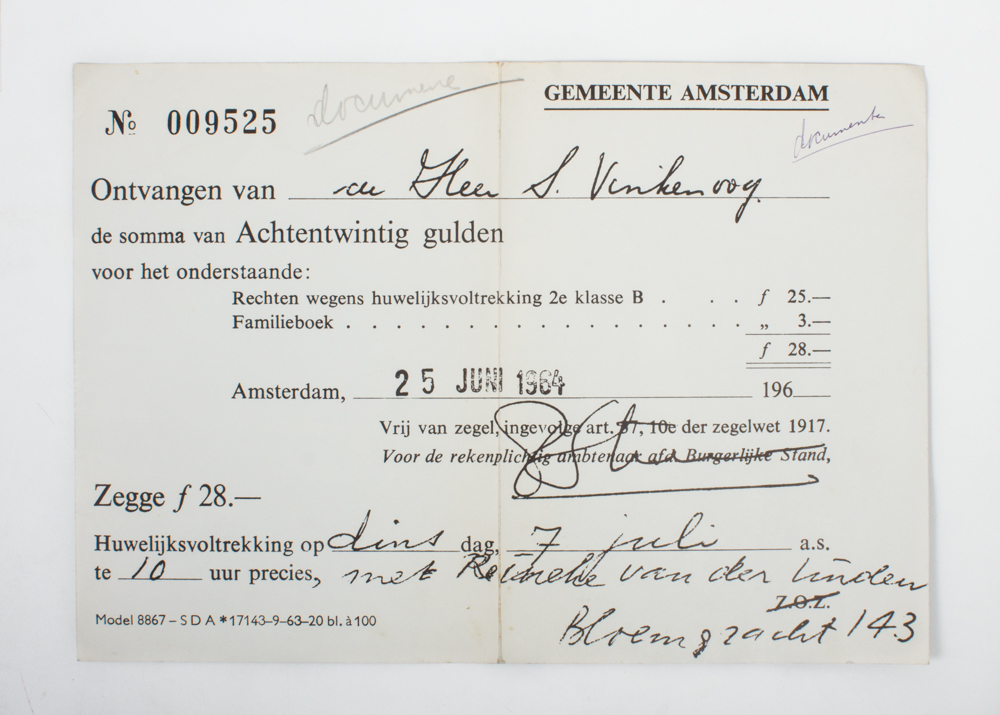 documene
GEMEENTE AMSTERDAM
№ 009525
documente
Ontvangen van de Heer S. Vinkenoog
de somma van Achtentwintig gulden
voor het onderstaande:
Rechten wegens huwelijksvoltrekking 2e klasse B . . . f 25.—
Familieboek . . . . . . . . . . . . . . . . . . „ 3.—
f 28.—
Amsterdam, 25 JUNI 1964 196
Vrij van zegel, ingevolge art. 37, 10e der zegelwet 1917.
Voor de rekenplichtig ambtenaar afd. Burgerlijke Stand,
Zegge f 28.—
Huwelijksvoltrekking op dins dag, 7 juli a.s.
te 10 uur precies, met Reineke van der Linden
Z.O.Z.
Bloemgracht 143
Model 8867 – S D A * 17143–9–63–20 bl. à 100